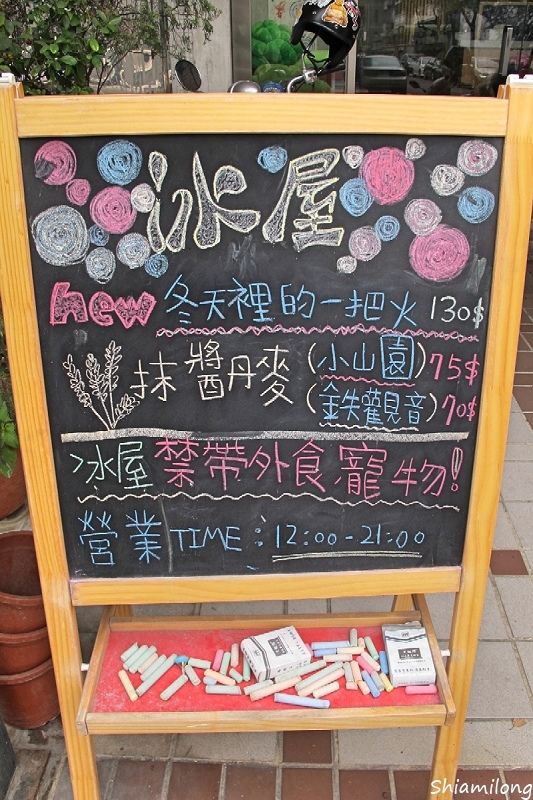 冰屋
new 冬天裡的一把火 130$
抹醬丹麥 (小山園) 75$
(鉄觀音) 70$
冰屋禁帶外食寵物!
營業TIME:12:00-21:00
Shiamilong